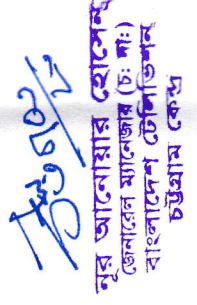 নূর আনোয়ার হোসেন
জেনারেল ম্যানেজার (চঃ দাঃ)
বাংলাদেশ টেলিভিশন
চট্টগ্রাম কেন্দ্র